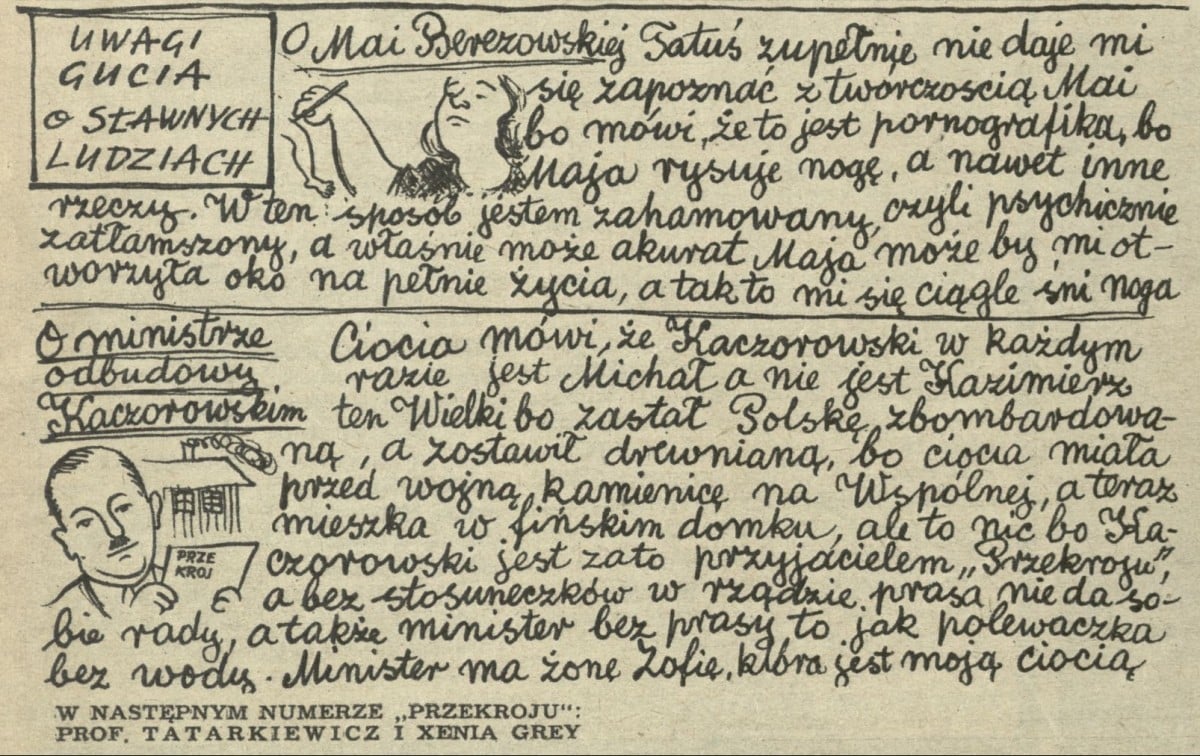 UWAGI
GUCIA
O SŁAWNYCH
LUDZIACH
O Mai Berezowskiej Tatuś zupełnie nie daje mi
się zapoznać z twórczością Mai
bo mówi, że to jest pornografika, bo
Maja rysuje nogę, a nawet inne
rzeczy. W ten sposób jestem zahamowany, czyli psychicznie
zatłamszony, a właśnie może akurat Maja może by mi ot-
worzyła oko na pełnie życia, a tak to mi się ciągle śni noga
O ministrze
odbudowy
Kaczorowskim
Ciocia mówi, że Kaczorowski w każdym
razie jest Michał a nie jest Kazimierz
ten Wielki bo zastał Polskę zbombardowa-
ną, a zostawił drewnianą, bo ciocia miała
przed wojną kamienicę na Wspólnej, a teraz
mieszka w fińskim domku, ale to nic bo Ka-
czorowski jest zato przyjacielem „Przekroju”,
a bez stosuneczków w rządzie prasa nie da so-
bie rady, a także minister bez prasy to jak polewaczka
bez wody. Minister ma żonę Zofię, która jest moją ciocią
PRZE
KROJ
W NASTĘPNYM NUMERZE „PRZEKROJU”:
PROF. TATARKIEWICZ I XENIA GREY